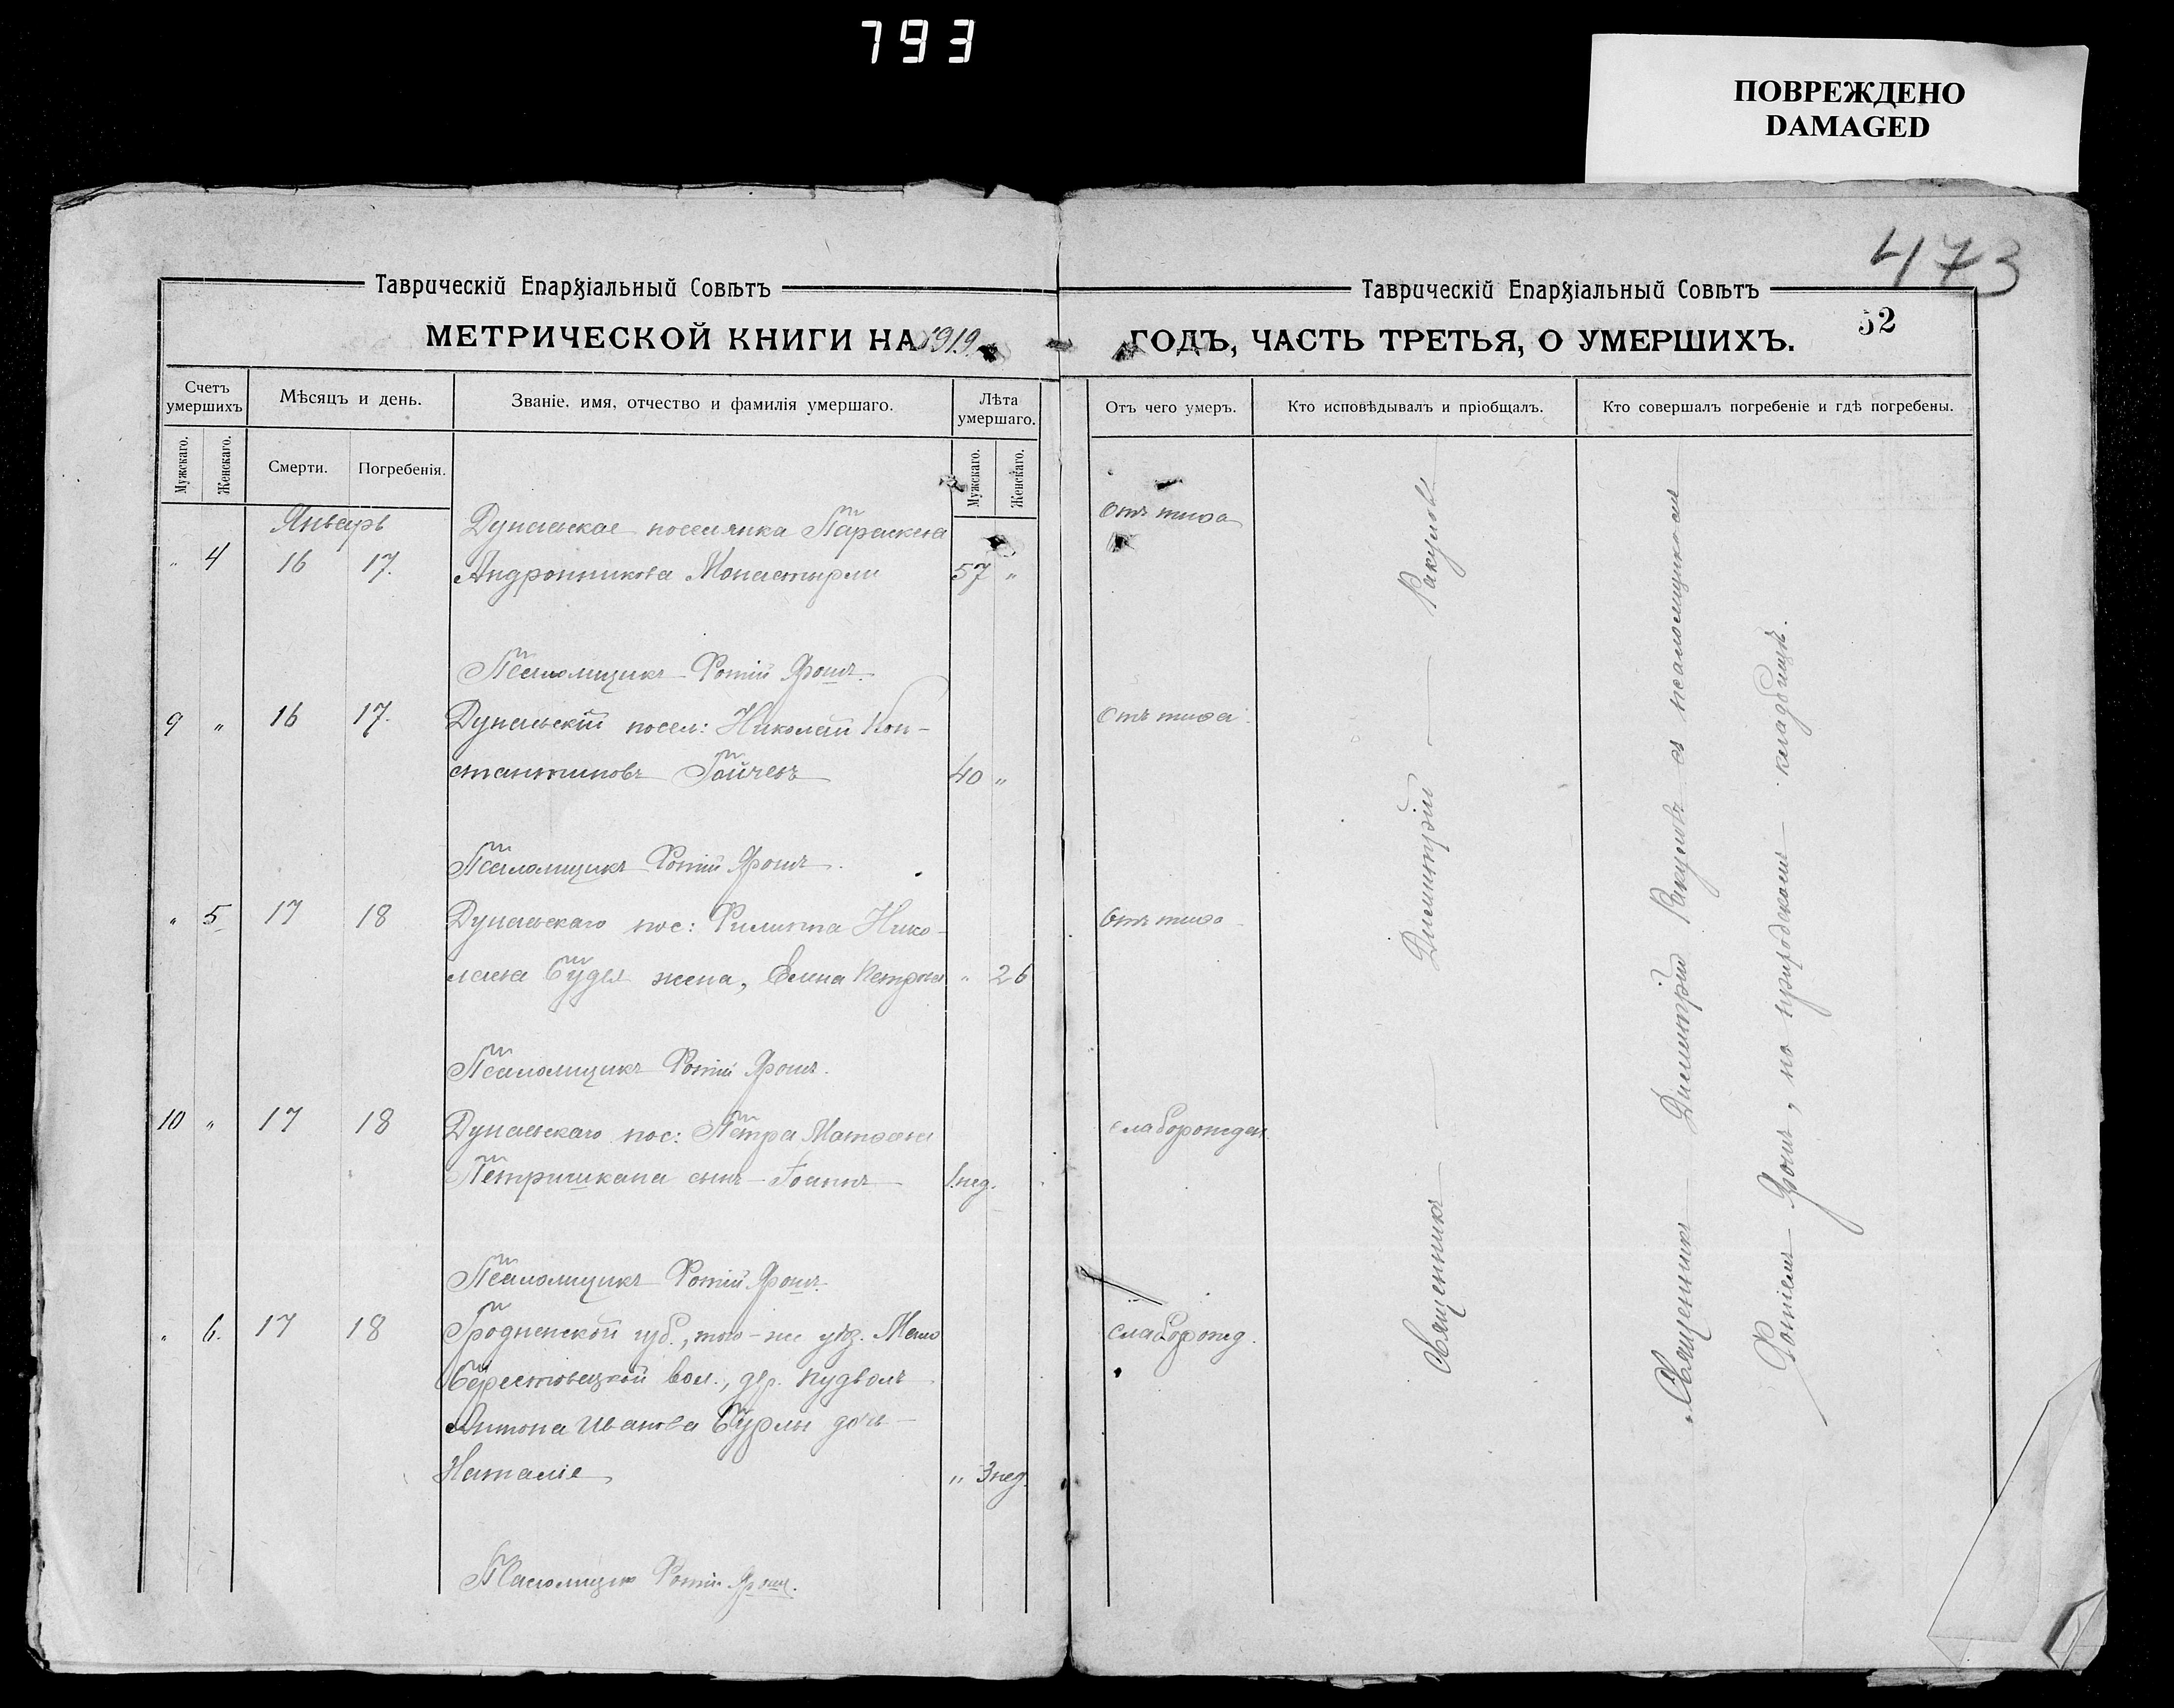 793
ПОВРЕЖДЕНО
DAMAGED
473
Таврическій Епархіальный Совѣтъ
МЕТРИЧЕСКОЙ КНИГИ НА 1919
Счетъ умершихъ
Мѣсяцъ и день.
Званіе, имя, отчество и фамилія умершаго.
Лѣта умершаго.
Мужскаго.
Женскаго.
Смерти.
Погребенія.
Мужскаго.
Женскаго.
Январь
Дунаевская поселянка Параскева
" 4 16 17. Андронникова Монастырли 57 "
Псаломщикъ Фотій Ярошъ.
9 " 16 17. Дунаевскій посел: Николай Кон-
стантиновъ Гойчевъ 40 "
Псаломщикъ Фотій Ярошъ.
" 5 17 18 Дунаевскаго пос: Филиппа Нико-
лаева жена, Елена Петрова " 26
Псаломщикъ Фотій Ярошъ.
10 " 17 18 Дунаевскаго пос: Петра Матѳеева
Петришкана сынъ Іоаннъ 1 нед.
Псаломщикъ Фотій Ярошъ.
" 6. 17 18 Гродненской губ., того-же уѣз. Мало
Берестовецкой вол., дер.
Антона Иванова Бурлы дочь
Наталіе " 3 нед.
Псаломщикъ Фотій Ярошъ.
Таврическій Епархіальный Совѣтъ
52
ГОДЪ, ЧАСТЬ ТРЕТЬЯ, О УМЕРШИХЪ.
Отъ чего умеръ.
Кто исповѣдывалъ и пріобщалъ.
Кто совершалъ погребеніе и гдѣ погребены.
Отъ тифа
Отъ тифа
Отъ тифа
слаборожден.
слаборожд.
Священникъ Димитрій Ракуловъ
Священникъ Димитрій Ракуловъ съ псаломщикомъ
Фотіемъ Ярошъ, на приходскомъ кладбищѣ.